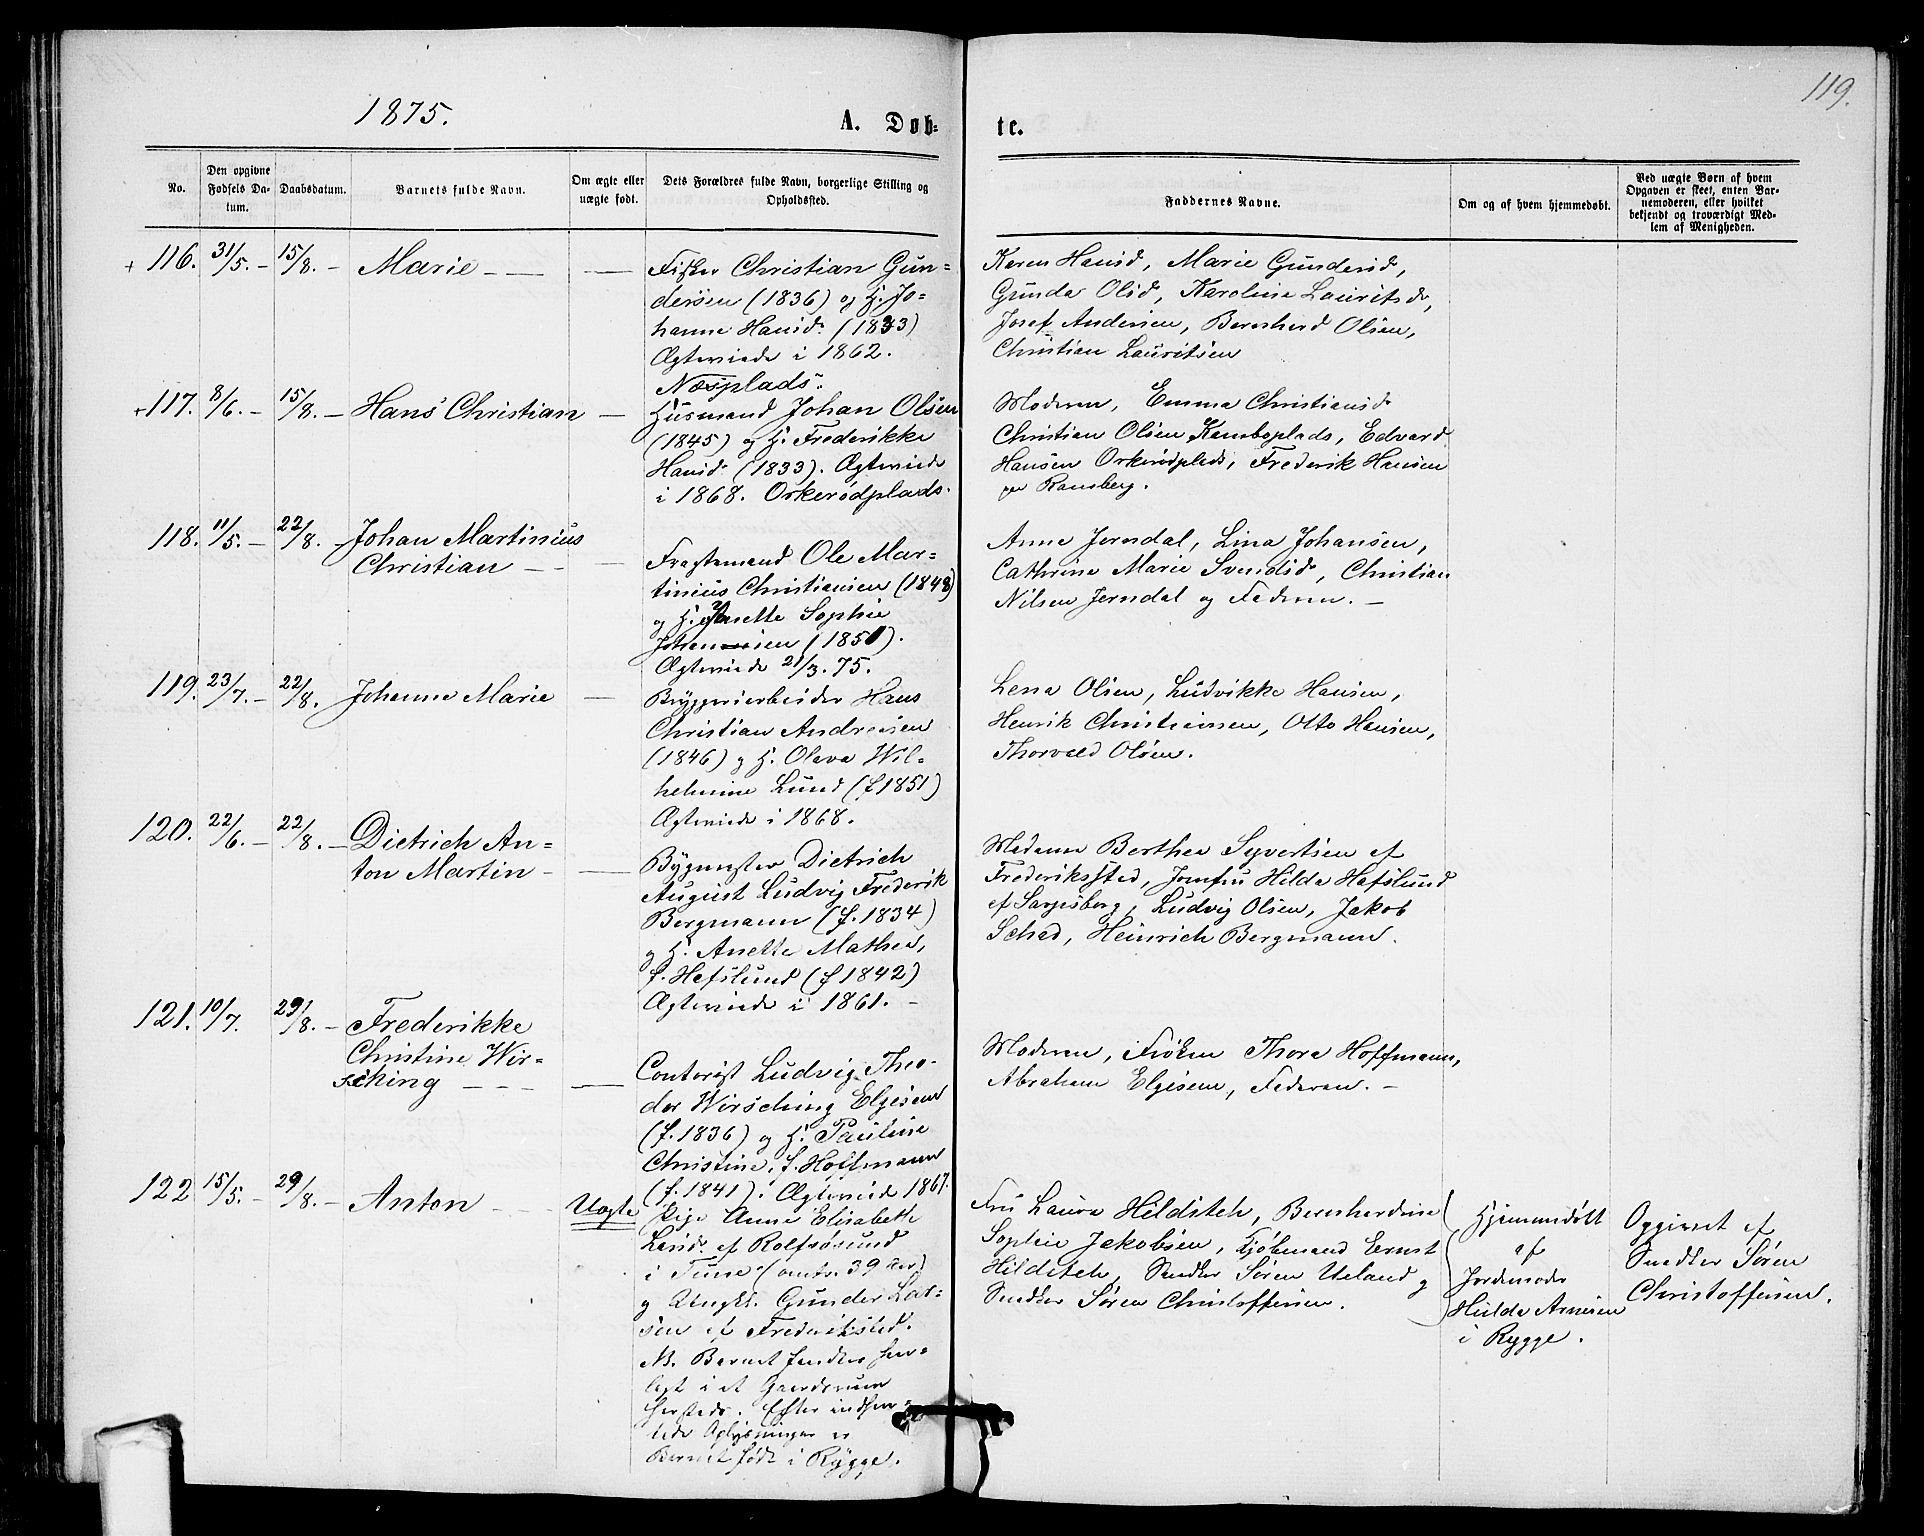 1875.
A. Døb-
te.
119.
No.
Den opgivne Fødsels Da- tum.
Daabsdatum.
Barnets fulde Navn.
Om ægte eller uægte født.
Dets Forældres fulde Navn, borgerlige Stilling og Opholdssted.
Faddernes Navne.
Om og af hvem hjemmedøbt.
Ved uægte Børn af hvem Opgaven er skeet, enten Bar- nemoderen, eller hvilket bekjendt og troværdigt Med- lem af Menigheden.
+ 116. 31/5. - 15/8. - Marie - — —
Fisker Christian Gun=
dersen (1836) og H. Jo=
hanne Hansd. (1833)
Ægteviede i 1862.
Næsplads.
Karen Hansd, Marie Gundersd,
Gunda Olsd, Karoline Lauritsd,
Josef Andersen, Bernhard Olsen,
Christian Lauritsen
+ 117. 8/6. - 15/8. - Hans Christian —
Husmand Johan Olsen
(1845) og H. Frederikke
Hansd. (1833). Ægteviede
i 1868. Orkerødplads.
Moderen, Emma Christiansd.
Christian Olsen Kamboplads, Edvard
Hansen Orkerødplads, Frederik Hansen
Ramberg.
118. 11/5. - 22/8. - Johan Martinius
Christian - - —
Fragtemand Ole Mar=
tinius Christiansen (1848)
og H. Anette Sophie
Johannesen (1851).
Ægteviede 21/3. 75.
Anne Jerndal, Lina Johansen,
Cathrine Marie Svendsd, Christian
Nilsen Jerndal og Faderen. -
119. 23/7. - 22/8. Johanne Marie —
Bryggeriarbeider Hans
Christian Andresen
(1846) og H. Olava Wil=
helmine Lund (f 1851)
Ægteviede i 1868.
Lena Olsen, Ludvikke Hansen,
Henrik Christiansen, Otto Hansen,
Thorvald Olsen.
120. 22/6. - 22/8. - Dietrich An=
ton Martin - —
Bygmester Dietrich
August Ludvig Frederik
Bergmann (f. 1834)
og H. Anette Mathea,
f. Hafslund (f 1842)
Ægteviede i 1861. -
Madame Berthea Syvertsen af
Frederiksstad, Jomfru Hilda Hafslund
af Sarpsborg, Ludvig Olsen, Jakob
Schad, Heinrich Bergmann.
121. 10/7. 29/8. - Frederikke
Christine Wir=
sching - - - —
Contorist Ludvig Theo-
dor Wirsching Elgesen
(f. 1836) og H. Pauline
Christine, f. Hoffmann
(f. 1841). Ægteviede 1867.
Moderen, Frøken Thora Hoffmann,
Abraham Elgesen, Faderen. -
122 15/5. - 29/8. - Anton - - Uægte
Pige Anne Elisabeth
Larsd. af Rolfsøsund
i Tune (omtr. 39 Aar)
og Ungk. Gunder Lar=
sen af Frederikstad.
NB. Barnet fandtes hen=
lagt i et Gaardsrum
hersteds. Efter indhen=
tede Oplysninger er
Barnet født i Rygge.
Fru Laura Hilditch, Bernhardine
Sophie Jakobsen, Kjøbmand Ernst
Hilditch, Snedker Søren Ueland og
Snedker Søren Christoffersen.
Hjemmedøbt
af
Jordemoder
Hulda Arnesen
i Rygge.
Opgivet af
Snedker Søren
Christoffersen.